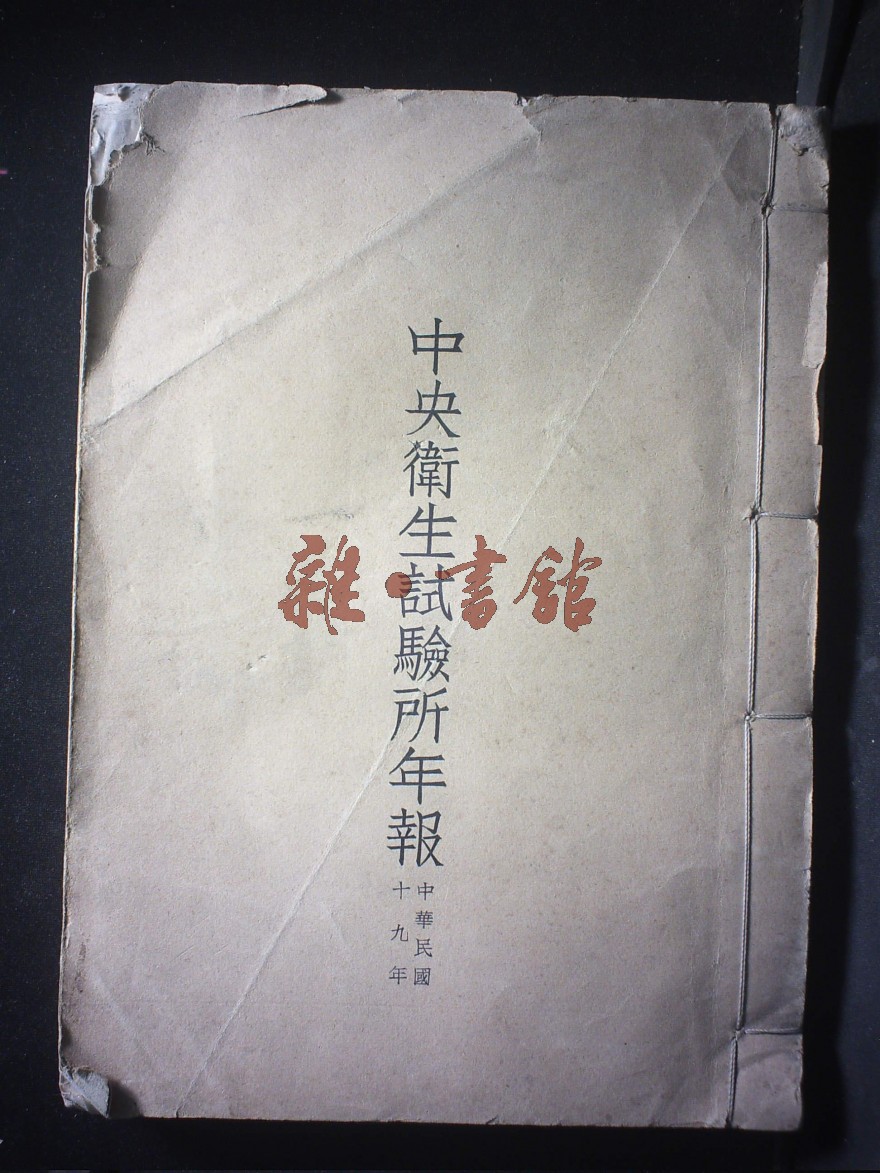 中央衛生試驗所年報
中華民國
十九年
雜·書館